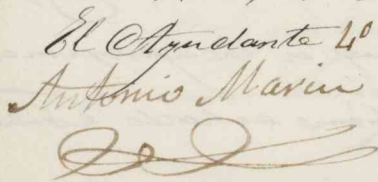 El Ayudante 4º
Antonio Marin